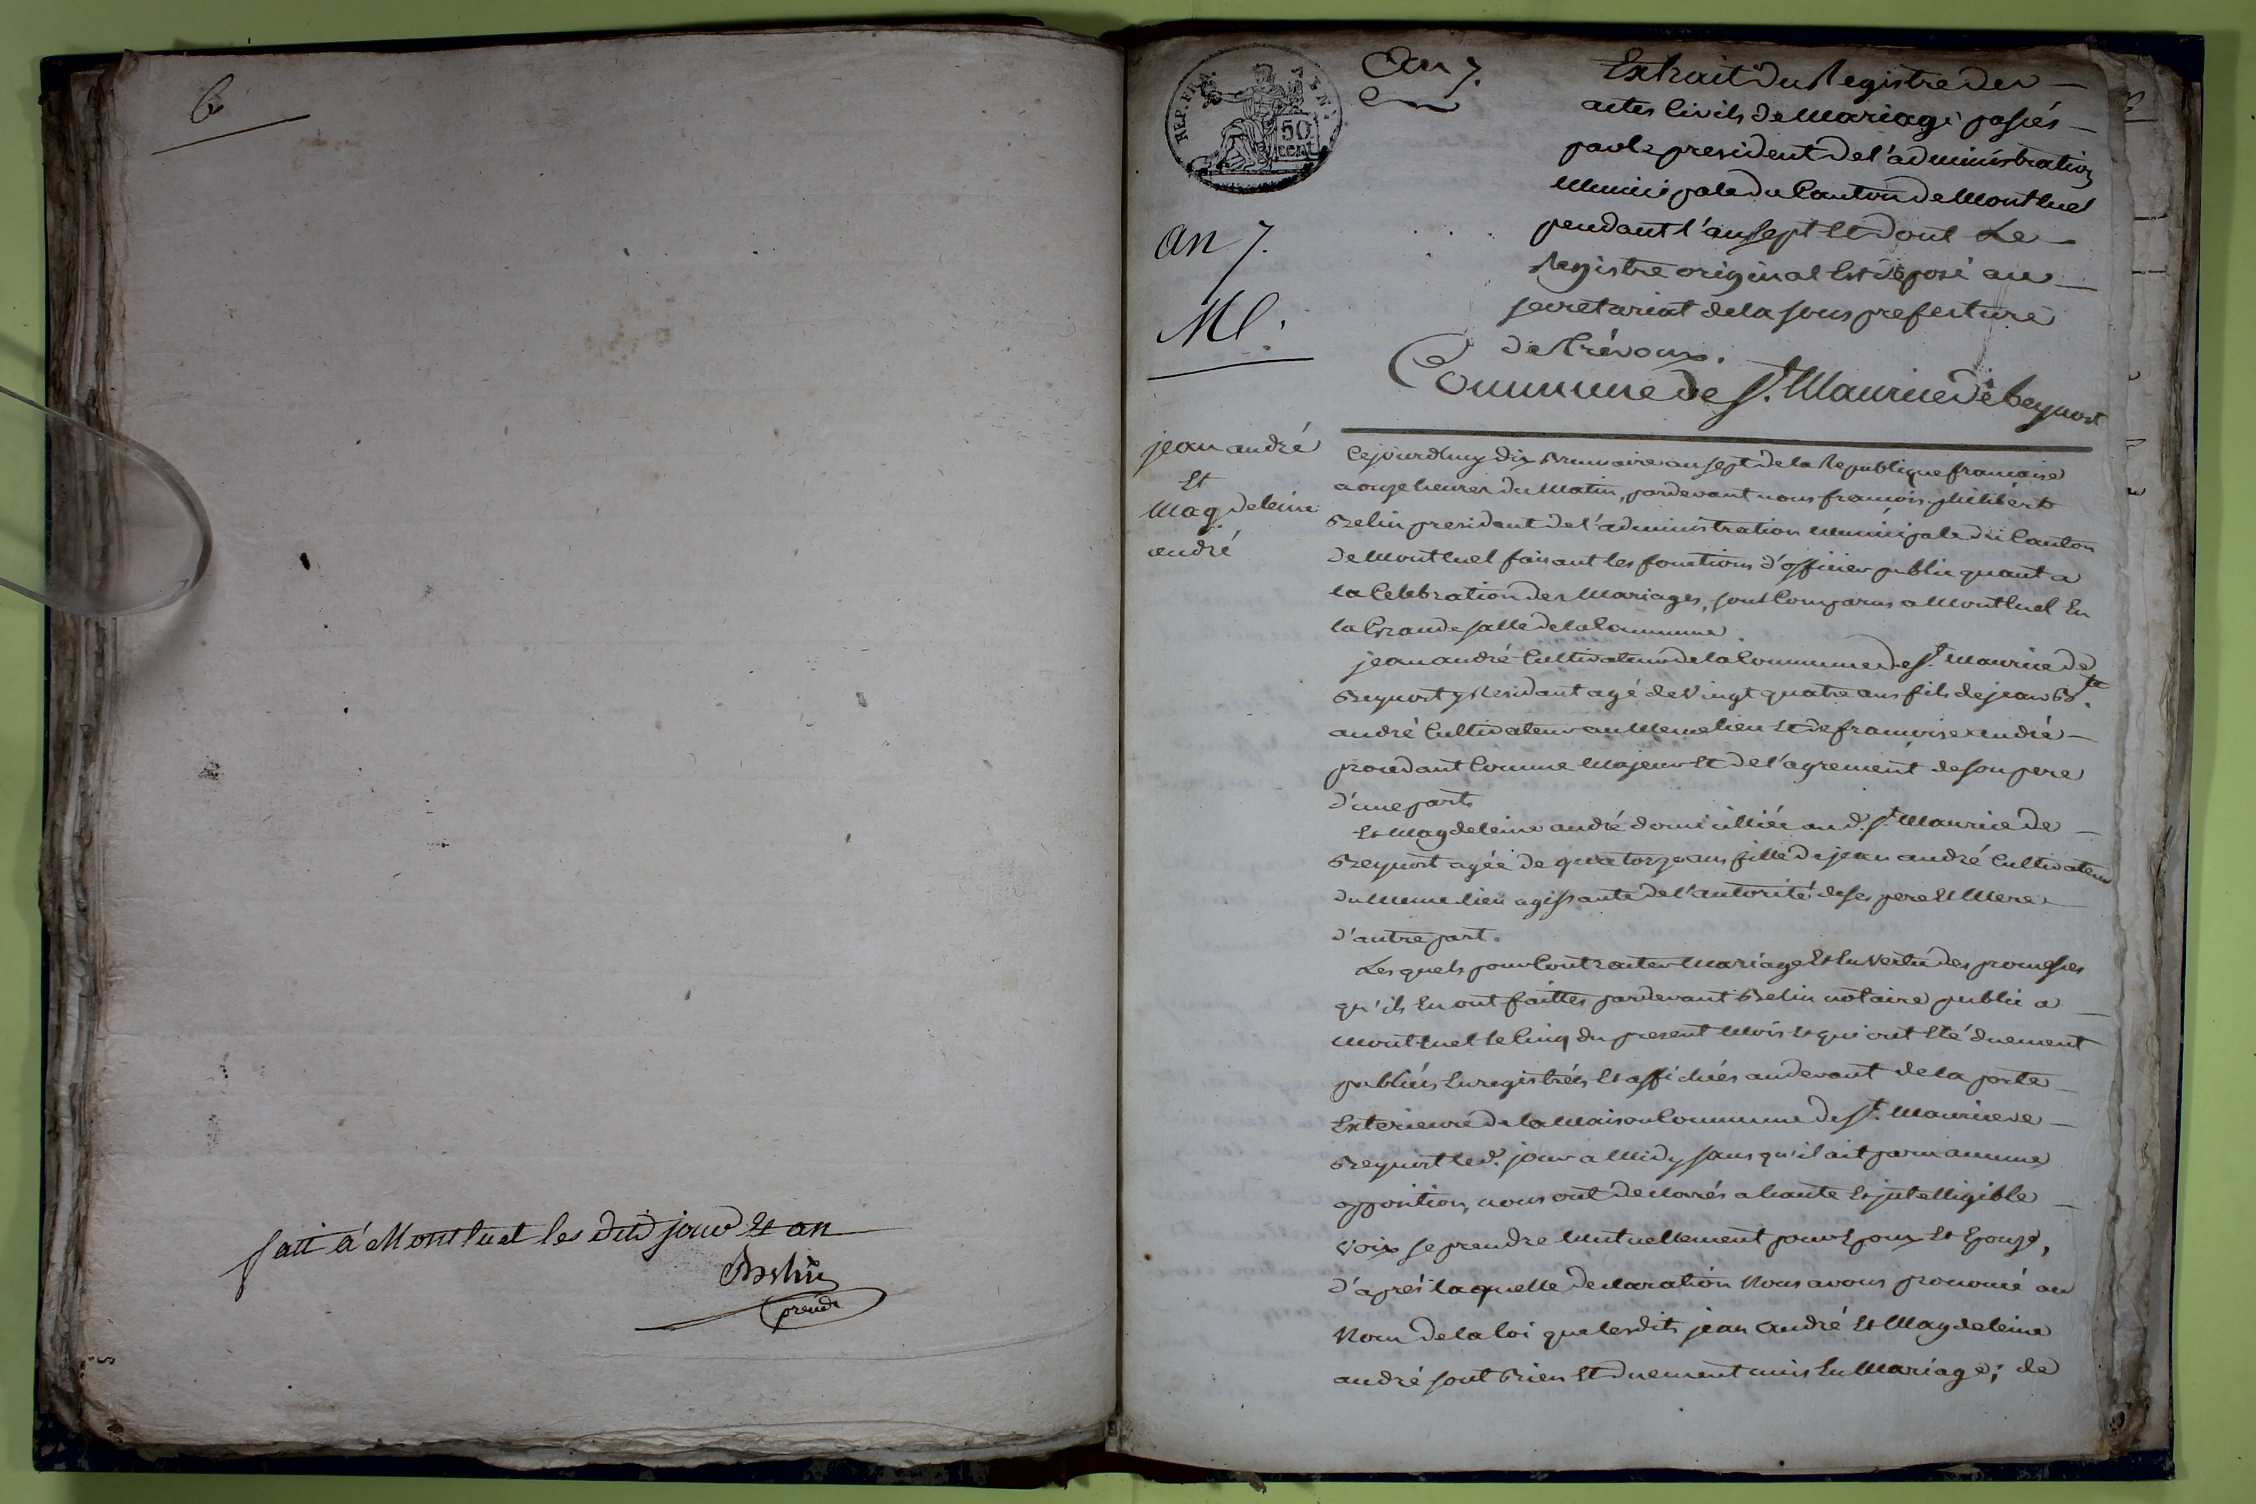 6
fait à Montluel les dits jour et an
Belin
présidt
REP. FRA. 
50
cent
an 7.
an 7.
Ml.
Extrait du Registre des
actes Civils de Mariage passés
par le president de l'administration
Municipale du Canton de Montluel
pendant l'an sept et dont Le
Registre original Est déposé au
secretariat de la sous prefecture
de Trévoux.
Commune de St. Maurice de beynost
jean andré
Et
Magdeleine
andré
Cejourdhuy dix Brumaire an sept de la Republique francaise
a onze heures du Matin, pardevant nous françois philibert
Belin president de l'administration Municipale du Canton
de Montluel faisant les fonctions d'officier public quant a
la Celebration des Mariages, sont Comparus a Montluel En
la Grande salle de la Commune.
jean andré Cultivateur de la Commune de St. Maurice de
Beynost y Residant agé de Vingt quatre ans fils de jean Bte.
andré Cultivateur au Meme lieu Et de francoise andré
procedant Comme Majeur Et de l'agrement de son pere
d'une part
Et Magdeleine andré domicilliée aud. St. Maurice de
Beynost agée de quatorze ans fille de jean andré Cultivateur
du Meme lieu agissante de l'autorité de ses pere Et Mere
d'autre part.
Lesquels pour Contracter Mariage Et En Vertu des promesses
qu'ils En ont faittes pardevant Belin notaire public a
Montluel le Cinq du present Mois Et qui ont Eté duement
publiées Enregistrées Et affichées audevant de la porte
Exterieure de la Maison Commune de St. Maurice de
Beynost led. jour a Midy sans qu'il ait paru aucune
opposition, nous ont declarés a haute Et jntelligible
Voix se prendre Mutuellement pour Epoux Et Epouse,
d'aprés laquelle declaration Nous avons prononcé au
Nom de la loi que lesdits jean andré Et Magdeleine
andré sont Bien Et duement unis En Mariage; de